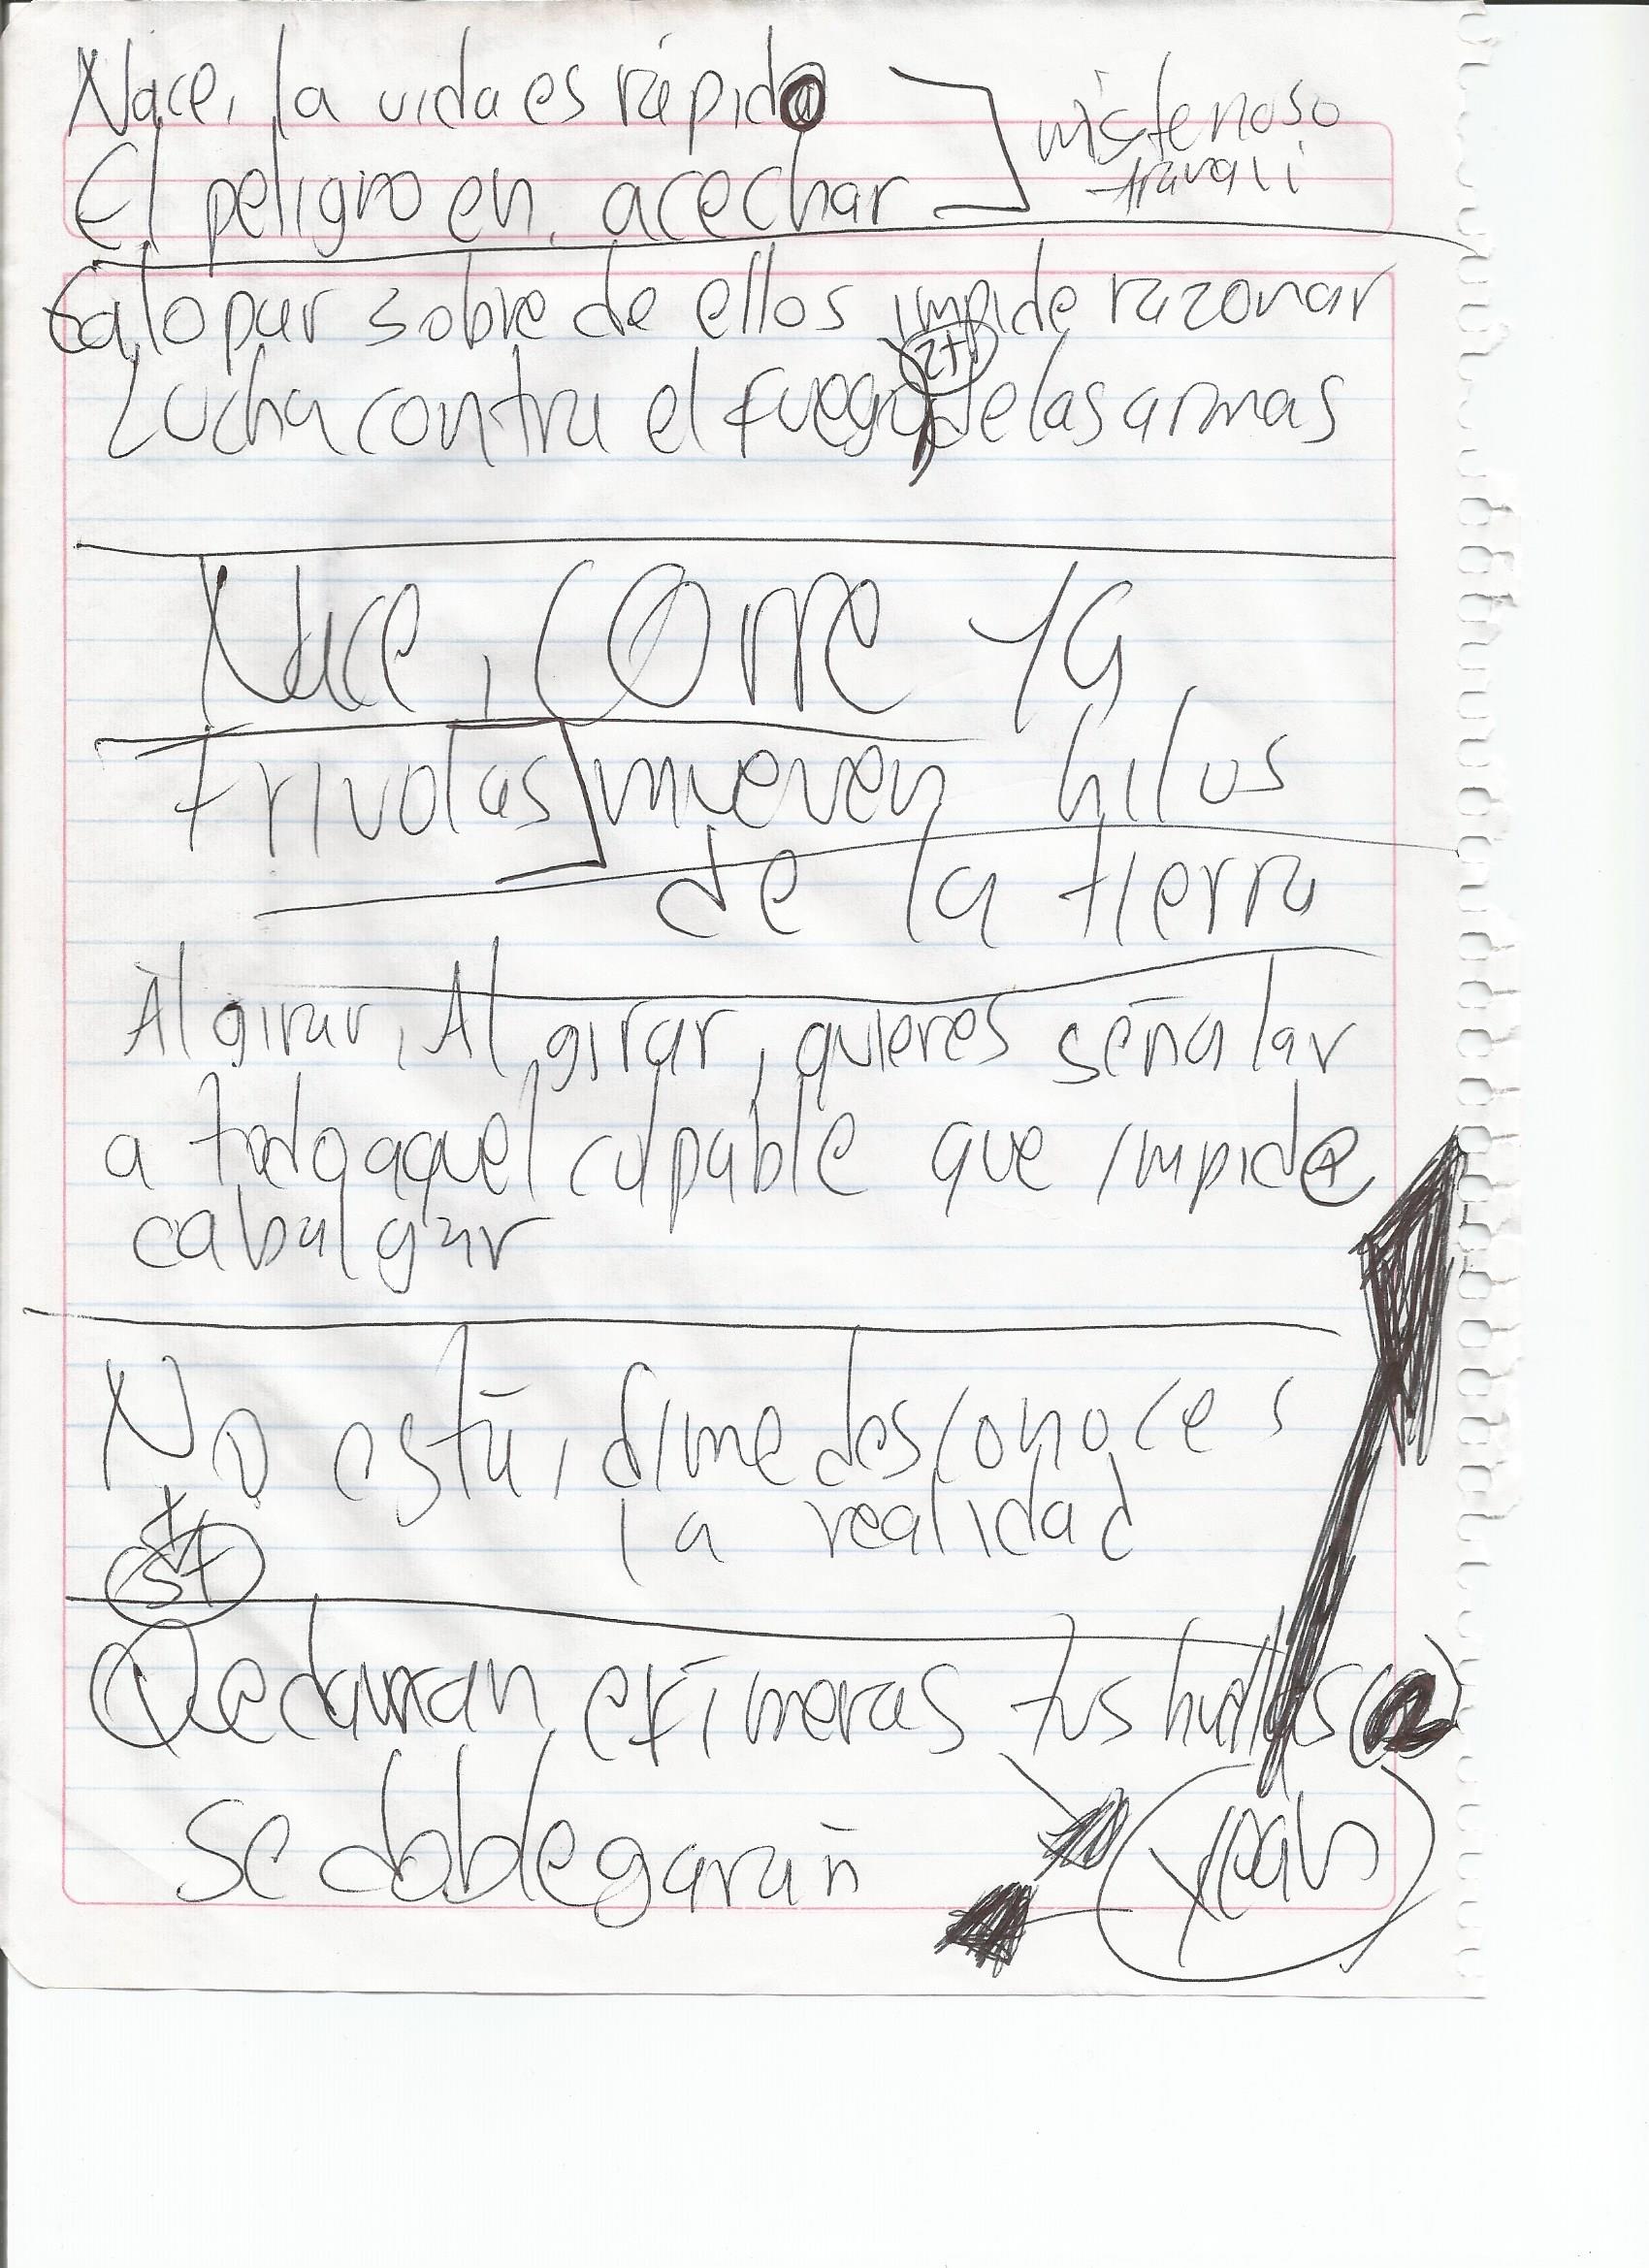 Nace, la vida es rápido
misterioso
El peligro en, acechar
Galopar sobre de ellos impide razonar
Lucha contra el fuego de las armas
Nace, Corre ya
Frivolas mueven hilos
de la tierra
Al girar, Al girar, quieres señalar
a todo aquel culpable que impide
cabalgar
No está, dime desconoces
la realidad
Quedaran efímeras tus huellas
se doblegarán
yeah